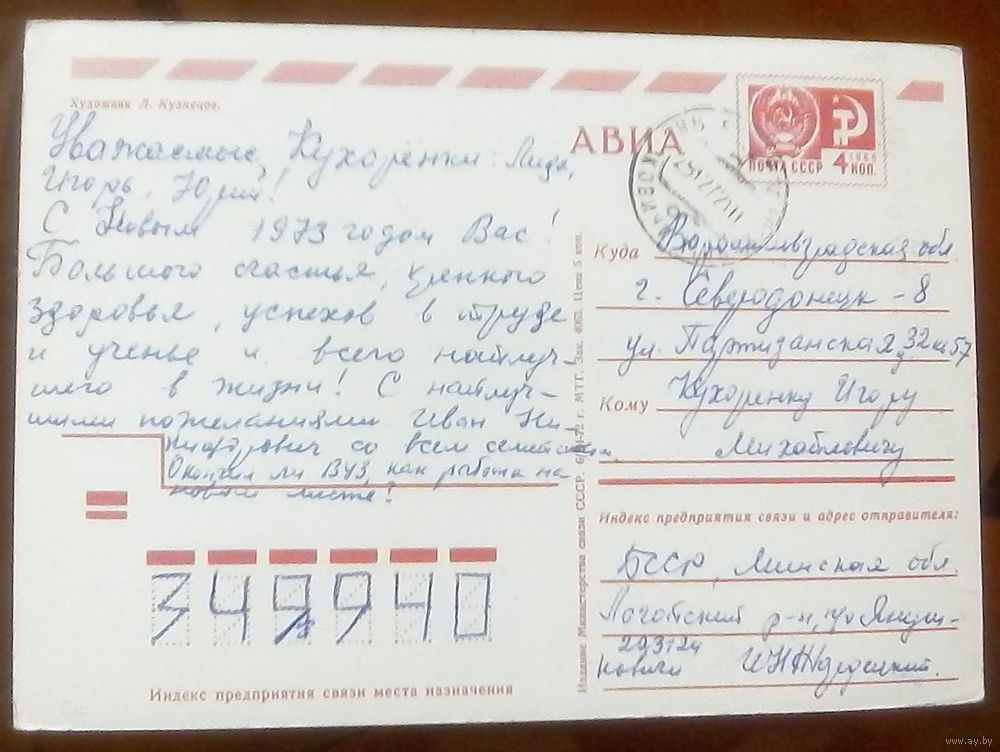 Художник Л. Кузнецов.
Уважаемые Кухоренки: Лида,
Игорь, Юрий!
С Новым 1973 годом Вас!
Большого счастья, хренного
здоровья, успехов в труде
и ученье и всего найлуч-
шего в жизни! С найлуч-
шими пожеланиями Иван Ни-
кифорович со всем семейством.
Окончил ли ВУЗ, как работа на
новом месте!
349940
Индекс предприятия связи места назначения
Издание Министерства связи СССР. 72 г. МТГ. Зак. 4063. Цена 5 коп.
АВИА
ПОЧТА СССР 1966 4 КОП.
Куда Ворошиловградская обл.
г. Северодонецк-8
ул. Партизанская 32 кв 57
Кому Кухоренку Игорю
Михайловичу
Индекс предприятия связи и адрес отправителя:
БССР, Минская обл.
Логойский р-н,
223124
www.ay.by